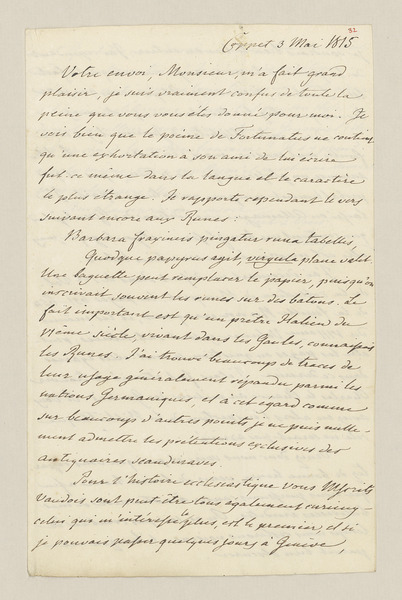 32
Coppet 3 Mai 1815
Votre envoi, Monsieur, m'a fait grand
plaisir, je suis vraiment confus de toute la
peine que vous vous êtes donné pour moi. Je
vois bien que le poëme de Fortunatus ne contient
qu'une exhortation à son ami de lui écrire
fut-ce même dans la langue et le caractère
le plus étrange. Je rapporte cependant le vers
suivant encore aux Runes:
Barbara fraxineis pingatur runa tabellis,
Quodque papyrus agit, virgula plana valet.
Une baguette peut remplacer le papier, puisqu'on
inscrivait souvent les runes sur des bâtons. Le
fait important est qu'un prêtre Italien du
VIème siècle, vivant dans les Gaules, connaissait
les Runes. J'ai trouvé beaucoup de traces de
leur usage généralement répandu parmi les
nations Germaniques, et à cet égard comme
sur beaucoup d'autres points, je ne puis nulle-
ment admettre les prétentions exclusives des
antiquaires scandinaves.
Pour l'histoire ecclesiastique vous Mscrits
Vaudois sont peut être tous également curieux
celui qui m'intéresse le plus, est le premier, et si
je pouvais passer quelques jours à Genève,